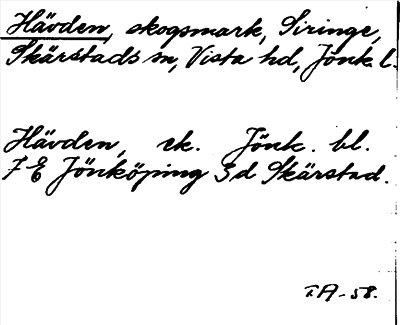 Hävden, skogsmark, Siringe,
Skärstads sn, Vista hd, Jönk. l.
Hävden, ek. Jönk. bl.
7 E Jönköping 3d Skärstad.
TA-58.